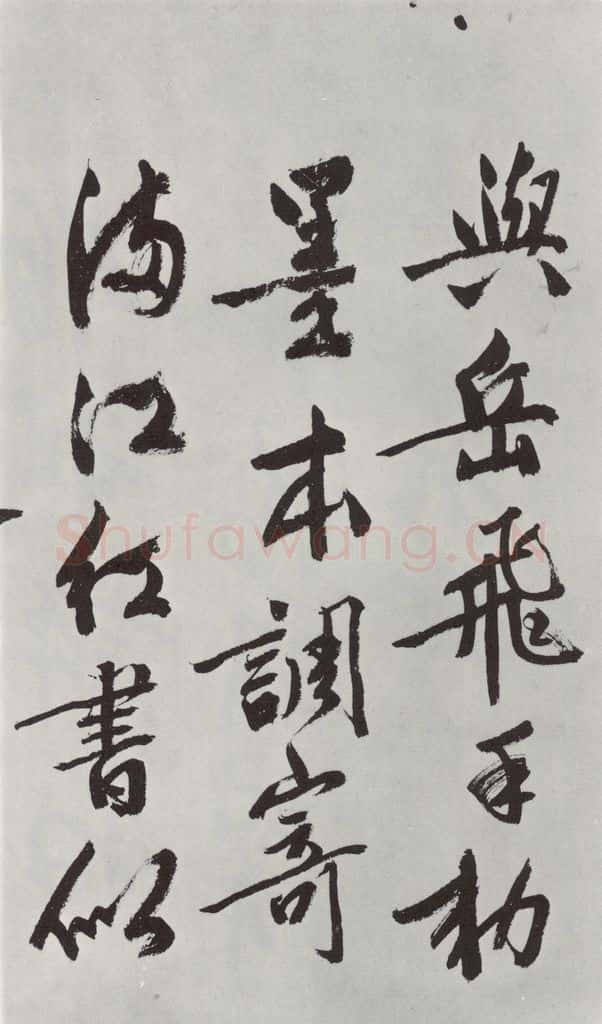 與岳飛手勅
墨本調寄
滿江紅書似
Shufawang.CN